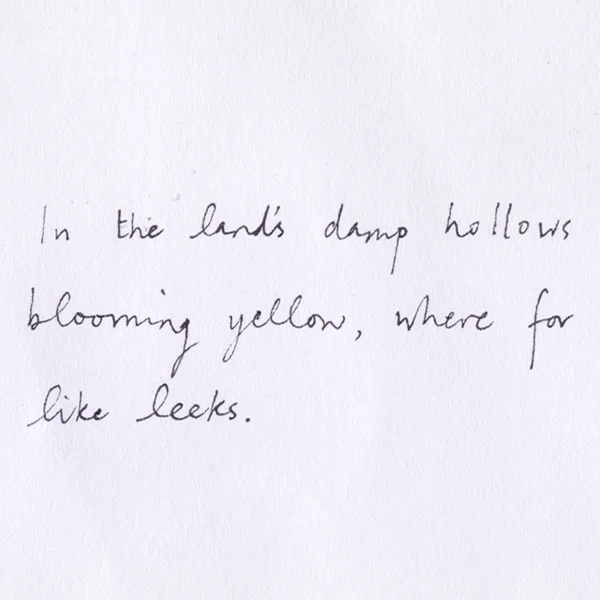 In the land's damp hollows
blooming yellow, where for
like leeks.